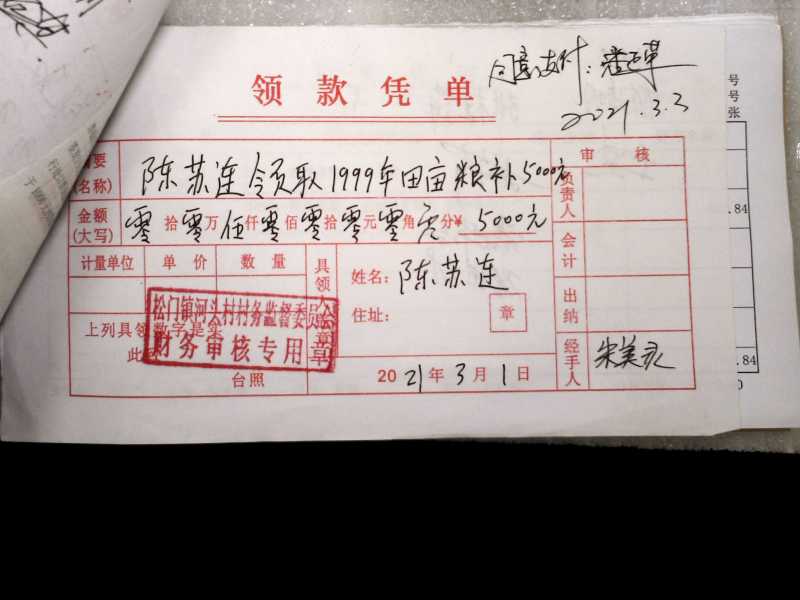 同意支付:
2021.3.3
领款凭单
摘要
(名称)
陈苏连领取1999年田亩粮补5000元
审核
负责人
金额
(大写)
零拾零万伍仟零佰零拾零元零角零分¥ 5000元
会计
计量单位 单价 数量
具领人 章
姓名: 陈苏连
住址:
章
出纳
松门镇河头村村务监督委员会
财务审核专用章
上列具领数字是实
此
台照
2021年3月1日
经手人
朱美灵
号
号
张
.84
.84
0